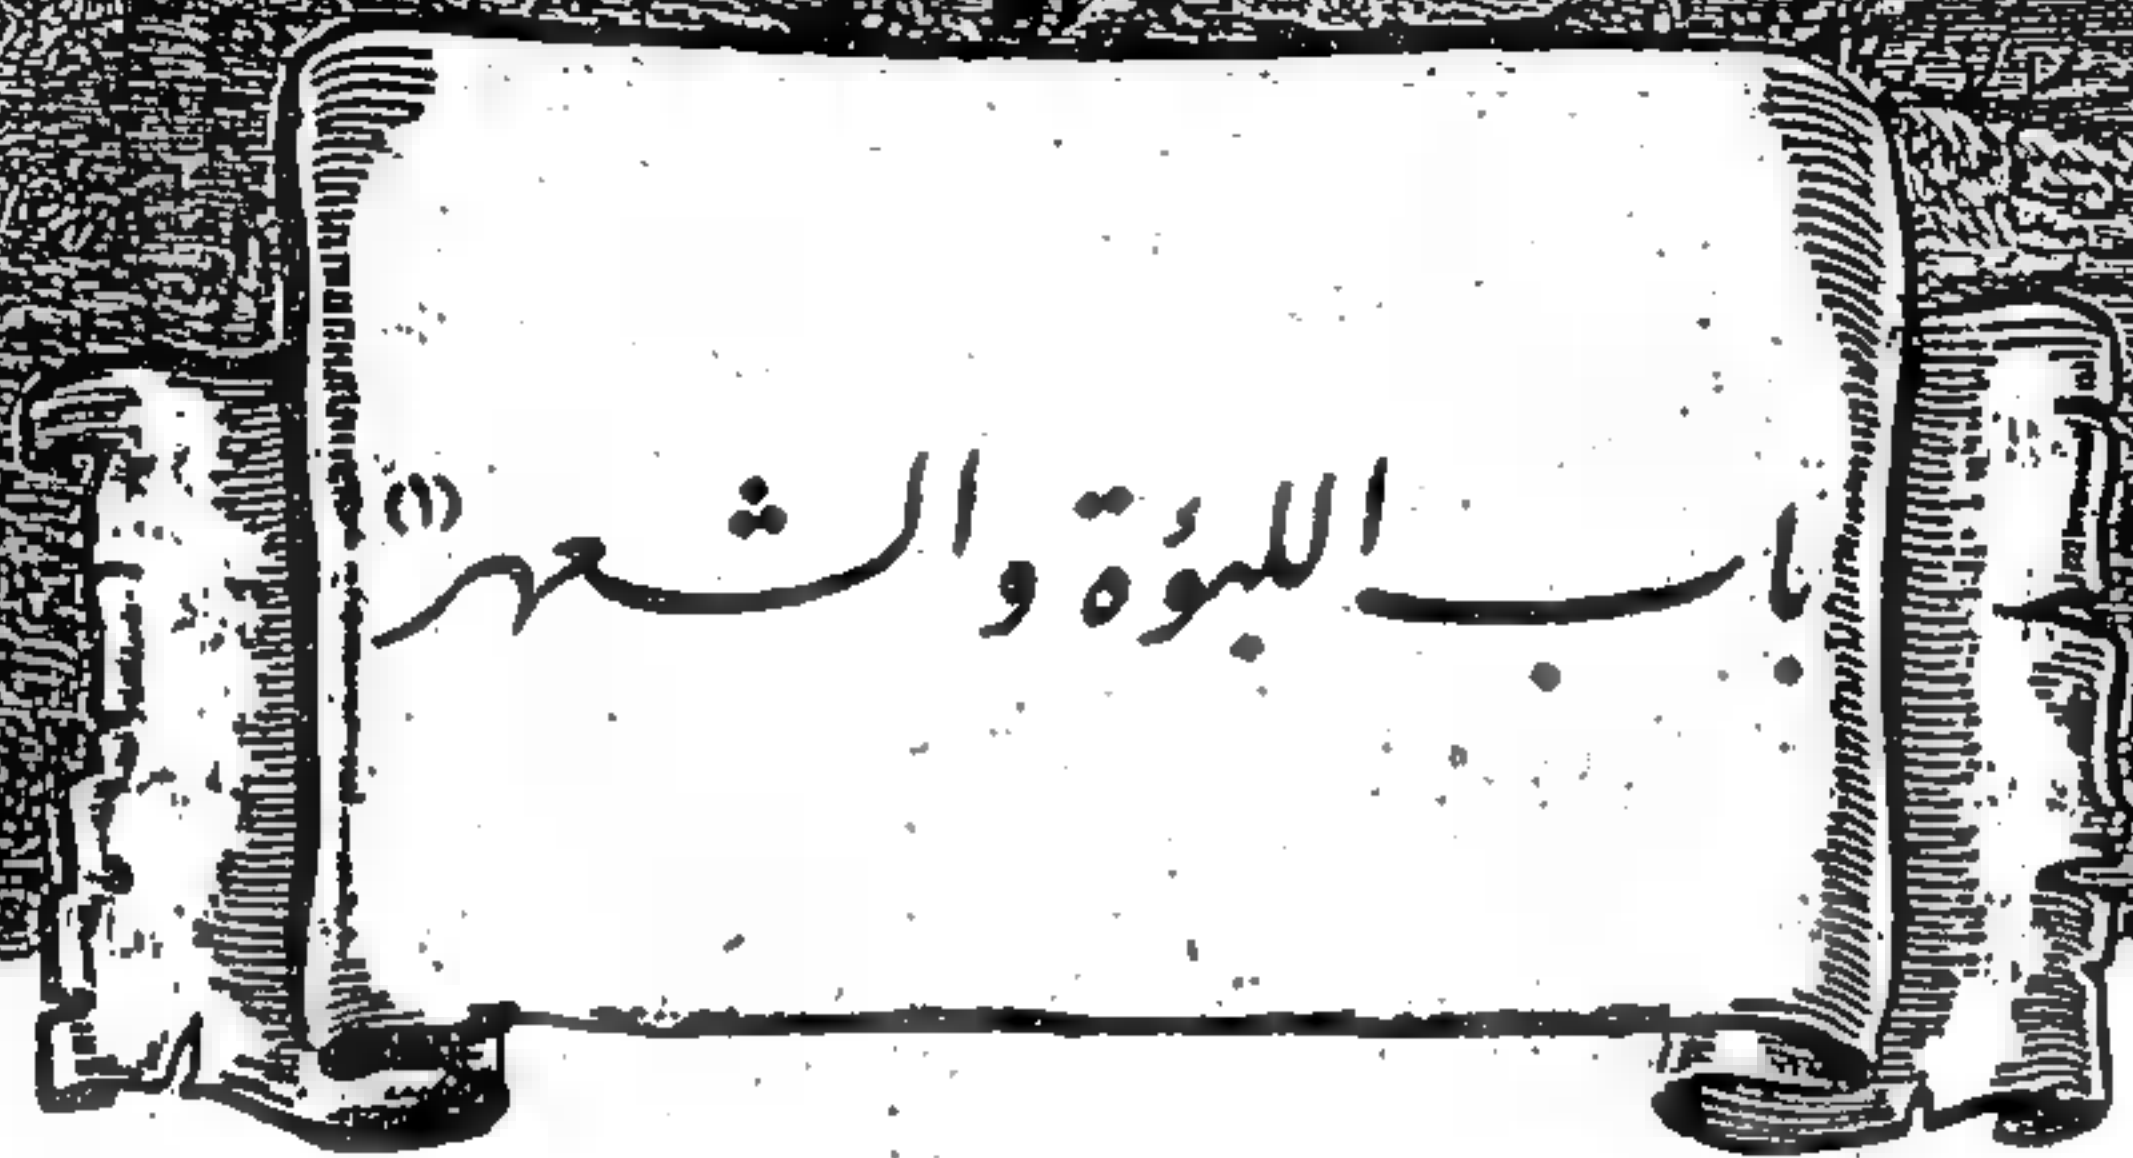 باب اللبؤة والشعهر (١)